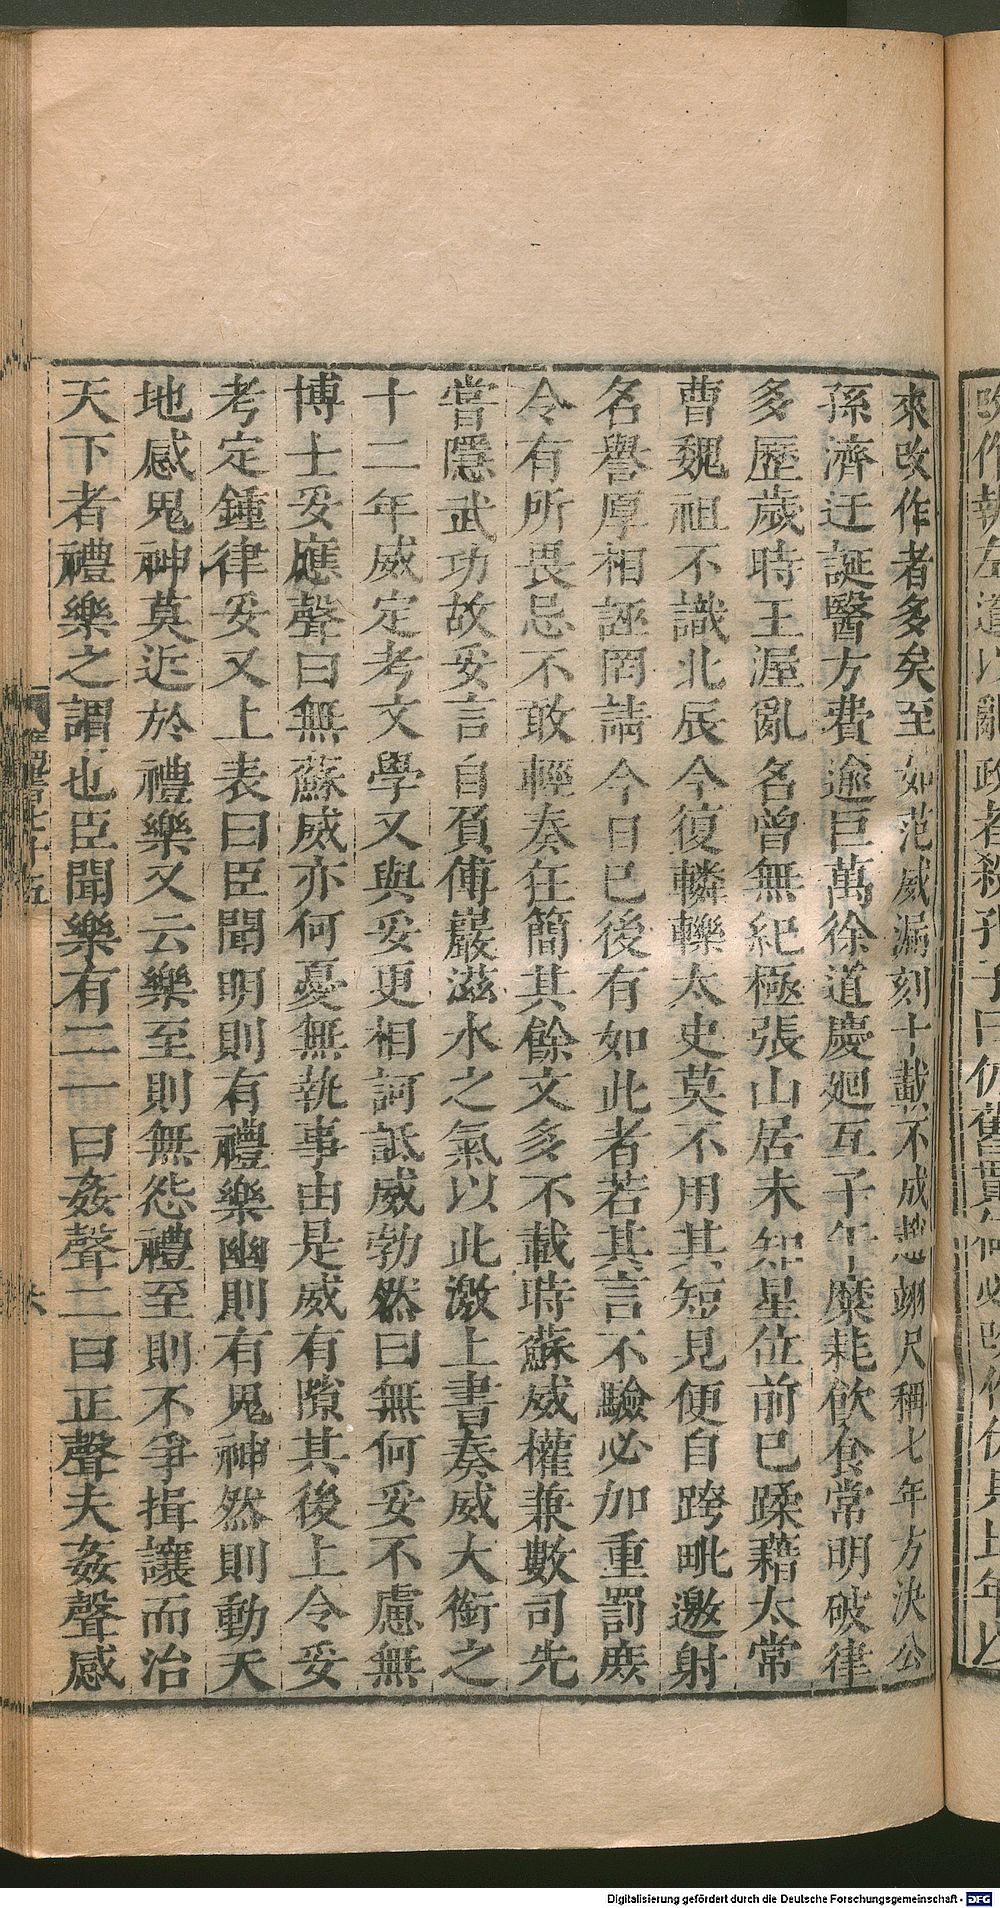 來改作者多矣至如范威漏刻十載不成趙翊尺稱七年方決公
孫濟迂誕醫方費逾巨萬徐道慶廻互子午糜耗飲食常明破律
多歷歲時王渥亂名曾無紀極張山居未知星位前已蹂藉太常
曹魏祖不識北辰今復轔轢太史莫不用其短見便自跨毗邀射
名譽厚相誣罔請今日已後有如此者若其言不驗必加重罰庶
令有所畏忌不敢輕奏狂簡其餘文多不載時蘇威權兼數司先
嘗隱武功故妥言自負傅巖滋水之氣以此激上書奏威大銜之
十二年威定考文學又與妥更相訶詆威勃然曰無何妥不慮無
博士妥應聲曰無蘇威亦何憂無執事由是威有隙其後上令妥
考定鍾律妥又上表曰臣聞明則有禮樂幽則有鬼神然則動天
地感鬼神莫近於禮樂又云樂至則無怨禮至則不爭揖讓而治
天下者禮樂之謂也臣聞樂有二一曰姦聲二曰正聲夫姦聲感
Digitalisierung gefördert durch die Deutsche Forschungsgemeinschaft - DFG